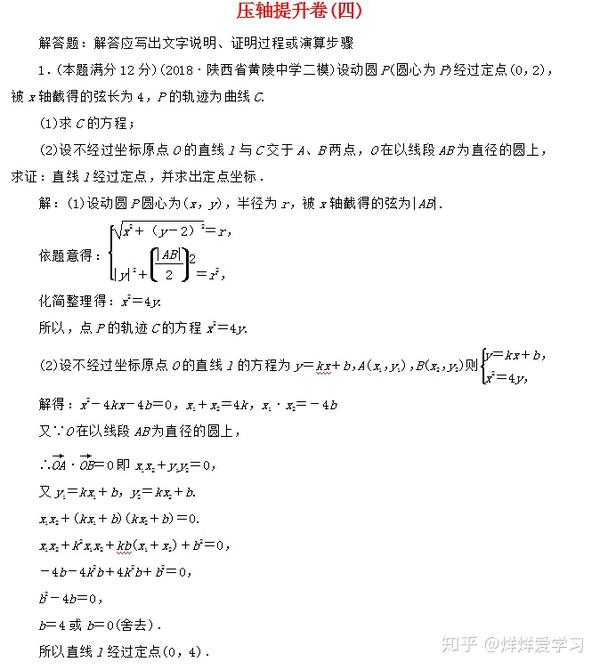 压轴提升卷(四)
解答题：解答应写出文字说明、证明过程或演算步骤
1．(本题满分12分)(2018·陕西省黄陵中学二模)设动圆P(圆心为P)经过定点(0，2)，
被x轴截得的弦长为4，P的轨迹为曲线C.
(1)求C的方程；
(2)设不经过坐标原点O的直线l与C交于A、B两点，O在以线段AB为直径的圆上，
求证：直线l经过定点，并求出定点坐标．
解：(1)设动圆P圆心为(x，y)，半径为r，被x轴截得的弦为|AB|.
依题意得：{√x²＋（y－2）²＝r，
|y|²＋(|AB|/2)²＝r²，
化简整理得：x²＝4y.
所以，点P的轨迹C的方程x²＝4y.
(2)设不经过坐标原点O的直线l的方程为y＝kx＋b，A(x₁，y₁)，B(x₂，y₂)则{y＝kx＋b，
x²＝4y，
解得：x²－4kx－4b＝0，x₁＋x₂＝4k，x₁·x₂＝－4b
又∵O在以线段AB为直径的圆上，
∴OA→·OB→＝0即x₁x₂＋y₁y₂＝0，
又y₁＝kx₁＋b，y₂＝kx₂＋b.
x₁x₂＋(kx₁＋b)(kx₂＋b)＝0.
x₁x₂＋k²x₁x₂＋kb(x₁＋x₂)＋b²＝0，
－4b－4k²b＋4k²b＋b²＝0，
b²－4b＝0，
b＝4或b＝0(舍去)．
所以直线l经过定点(0，4)．
知乎 @烊烊爱学习